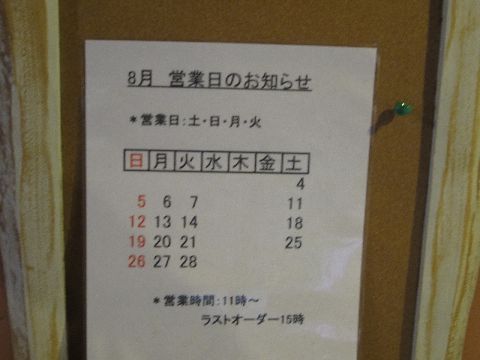 8月 営業日のお知らせ
＊営業日:土・日・月・火
日 月 火 水 木 金 土
4
5 6 7 11
12 13 14 18
19 20 21 25
26 27 28
＊営業時間:11時～
ラストオーダー15時